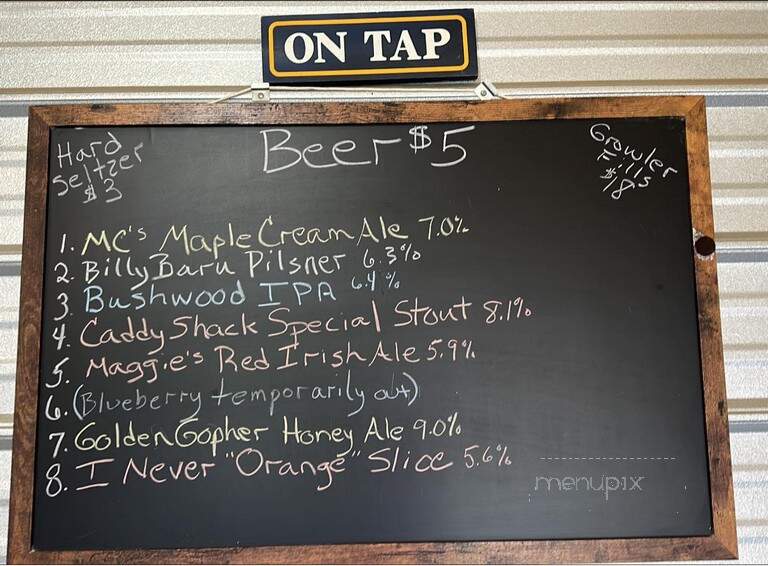 ON TAP
Hard
Seltzer
$3
Beer $5
Growler
Fills
$18
1. MC's Maple Cream Ale 7.0%
2. Billy Baru Pilsner 6.3%
3. Bushwood IPA 6.4%
4. Caddy Shack Special Stout 8.1%
5. Maggie's Red Irish Ale 5.9%
6. (Blueberry temporarily out)
7. Golden Gopher Honey Ale 9.0%
8. I Never "Orange" Slice 5.6%
menupix